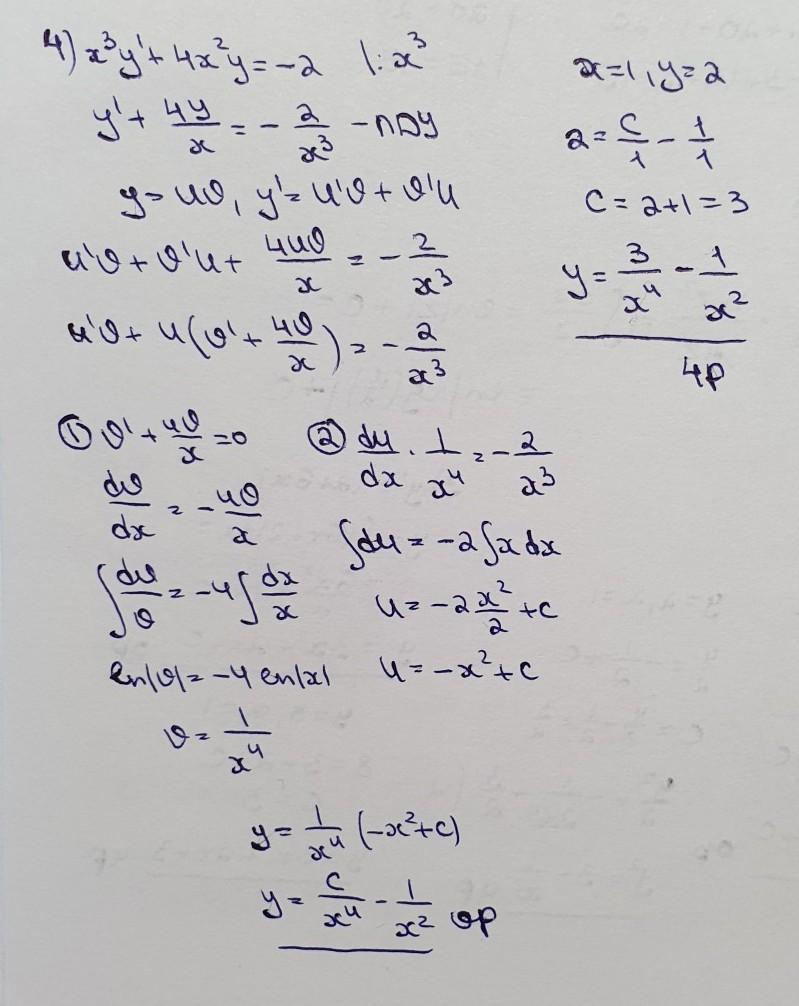 4) x³y' + 4x²y = -2 |: x³
y' + 4y/x = - 2/x³ - ЛДУ
y = uv, y' = u'v + v'u
u'v + v'u + 4uv/x = - 2/x³
u'v + u(v' + 4v/x) = - 2/x³
① v' + 4v/x = 0
dv/dx = - 4v/x
∫ dv/v = -4 ∫ dx/x
ln|v| = -4 ln|x|
v = 1/x⁴
② du/dx · 1/x⁴ = - 2/x³
∫ du = -2 ∫ x dx
u = -2 x²/2 + c
u = -x² + c
y = 1/x⁴ (-x² + c)
y = c/x⁴ - 1/x² ор
x = 1, y = 2
2 = c/1 - 1/1
c = 2 + 1 = 3
y = 3/x⁴ - 1/x²
чр